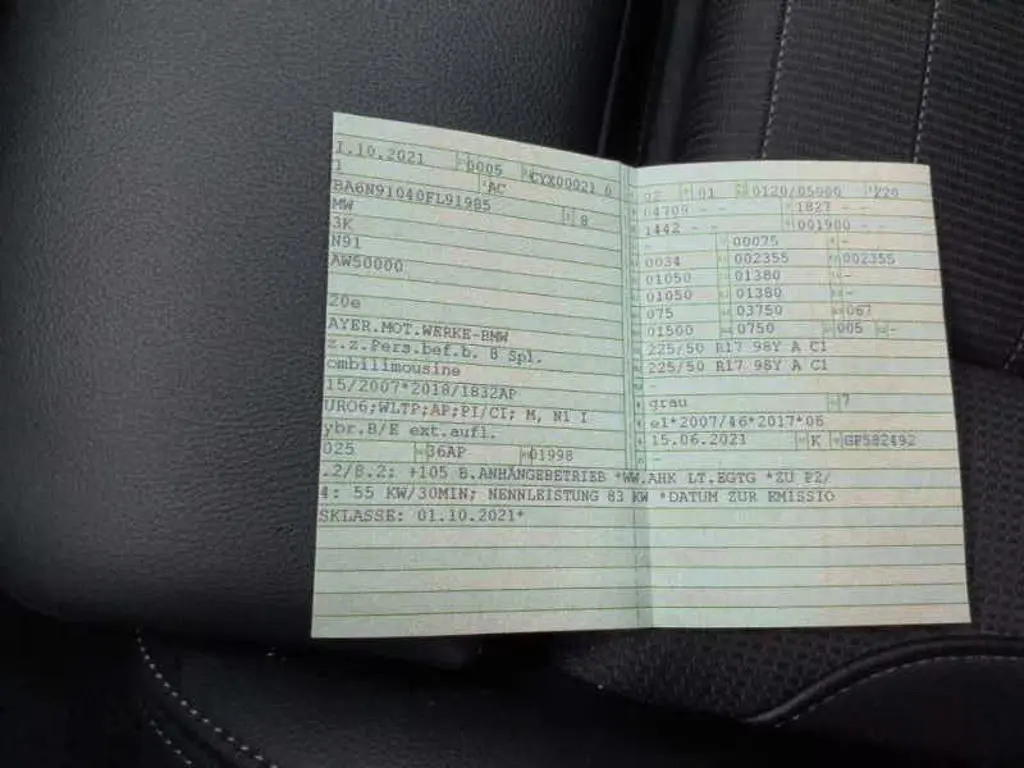 1.10.2021 0005 CYX00021 0
1 AC
BA6N91040FL91985 8
MW
3K
N91
AW50000
20e
AYER.MOT.WERKE-BMW
z.z.Pers.bef.b. 8 Spl.
ombilimousine
15/2007*2018/1832AP
URO6;WLTP;AP;PI/CI; M, N1 I
ybr.B/E ext.aufl.
025 36AP 01998
.2/8.2: +105 B.ANHÄNGEBETRIEB *WW.AHK LT.EGTG *ZU P2/
4: 55 KW/30MIN; NENNLEISTUNG 83 KW *DATUM ZUR EMISSIO
SKLASSE: 01.10.2021*
02 01 0120/05000 220
04709 - - 1827 - -
1442 - - 001900 - -
- 00075 -
0034 002355 002355
01050 01380 -
01050 01380 -
075 03750 067
01500 0750 005 -
225/50 R17 98Y A C1
225/50 R17 98Y A C1
-
grau 7
e1*2007/46*2017*06
15.06.2021 K GP582492
-